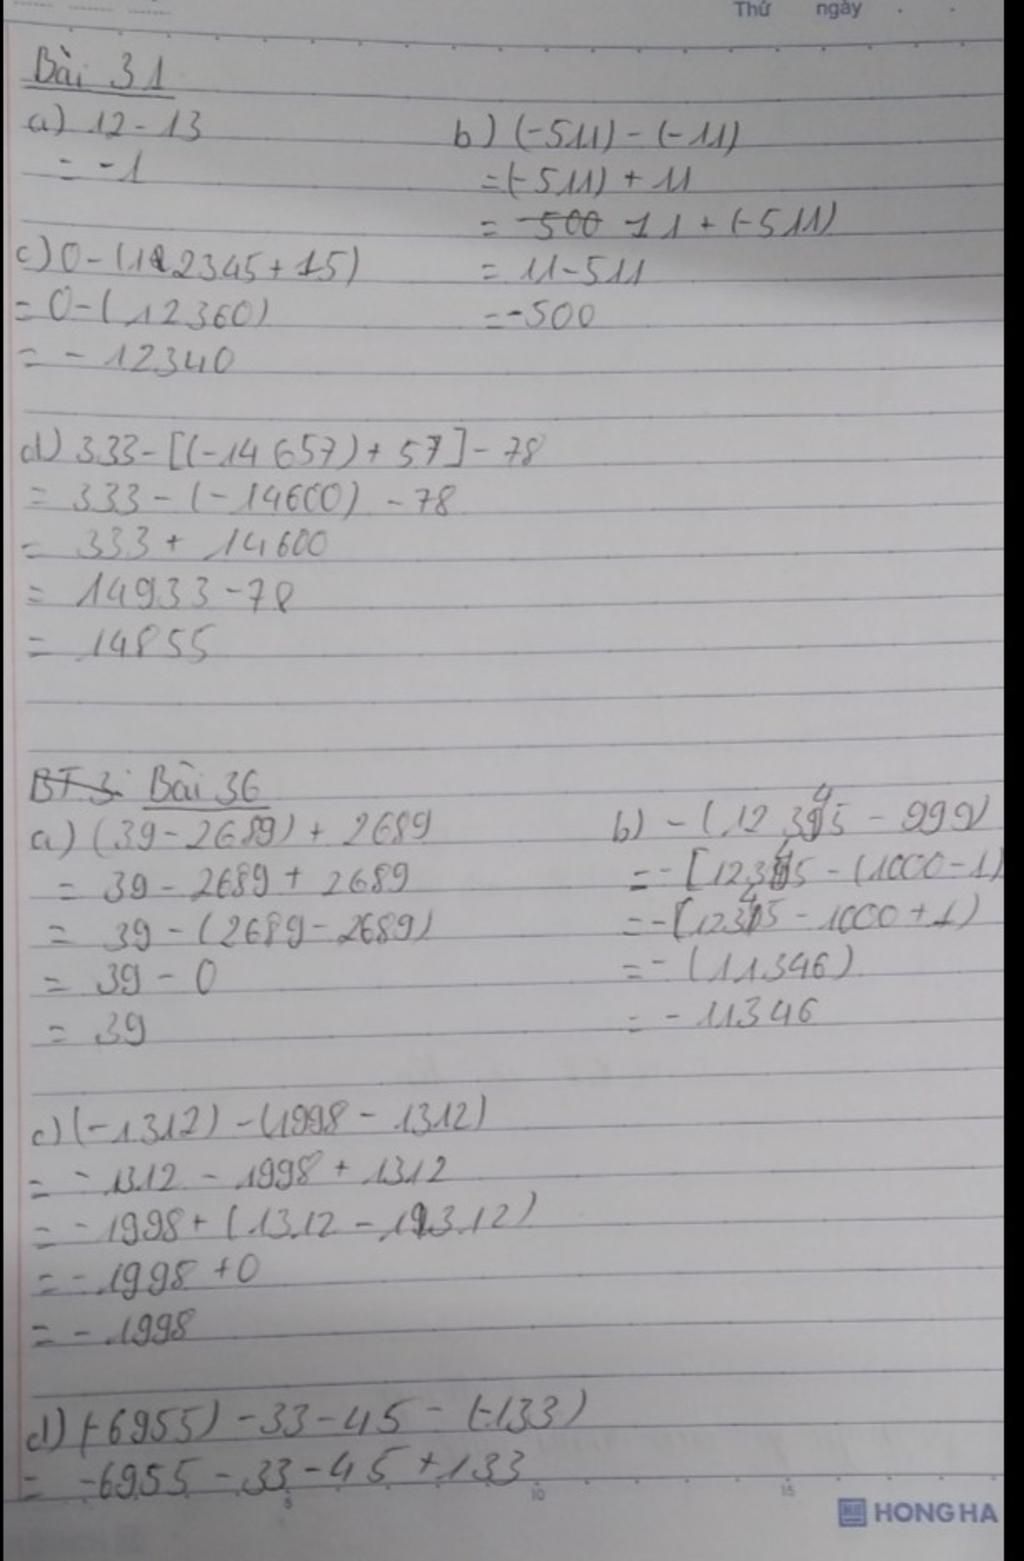 Thứ ngày
Bài 31
a) 12 - 13
= -1
b) (-511) - (-11)
= (-511) + 11
= 11 + (-511)
= 11 - 511
= -500
c) 0 - (12345 + 15)
= 0 - (12360)
= - 12340
d) 333 - [(-14657) + 57] - 78
= 333 - (-14600) - 78
= 333 + 14600
= 14933 - 78
= 14855
BT 3: Bài 36
a) (39 - 2689) + 2689
= 39 - 2689 + 2689
= 39 - (2689 - 2689)
= 39 - 0
= 39
b) - (12345 - 999)
= - [12345 - (1000 - 1)
= - [12345 - 1000 + 1)
= - (11346)
= - 11346
c) (-1312) - (1998 - 1312)
= - 1312 - 1998 + 1312
= - 1998 + (1312 - 1312)
= - 1998 + 0
= - 1998
d) (-6955) - 33 - 45 - (-133)
= -6955 - 33 - 45 + 133
5 10 15
HONG HA